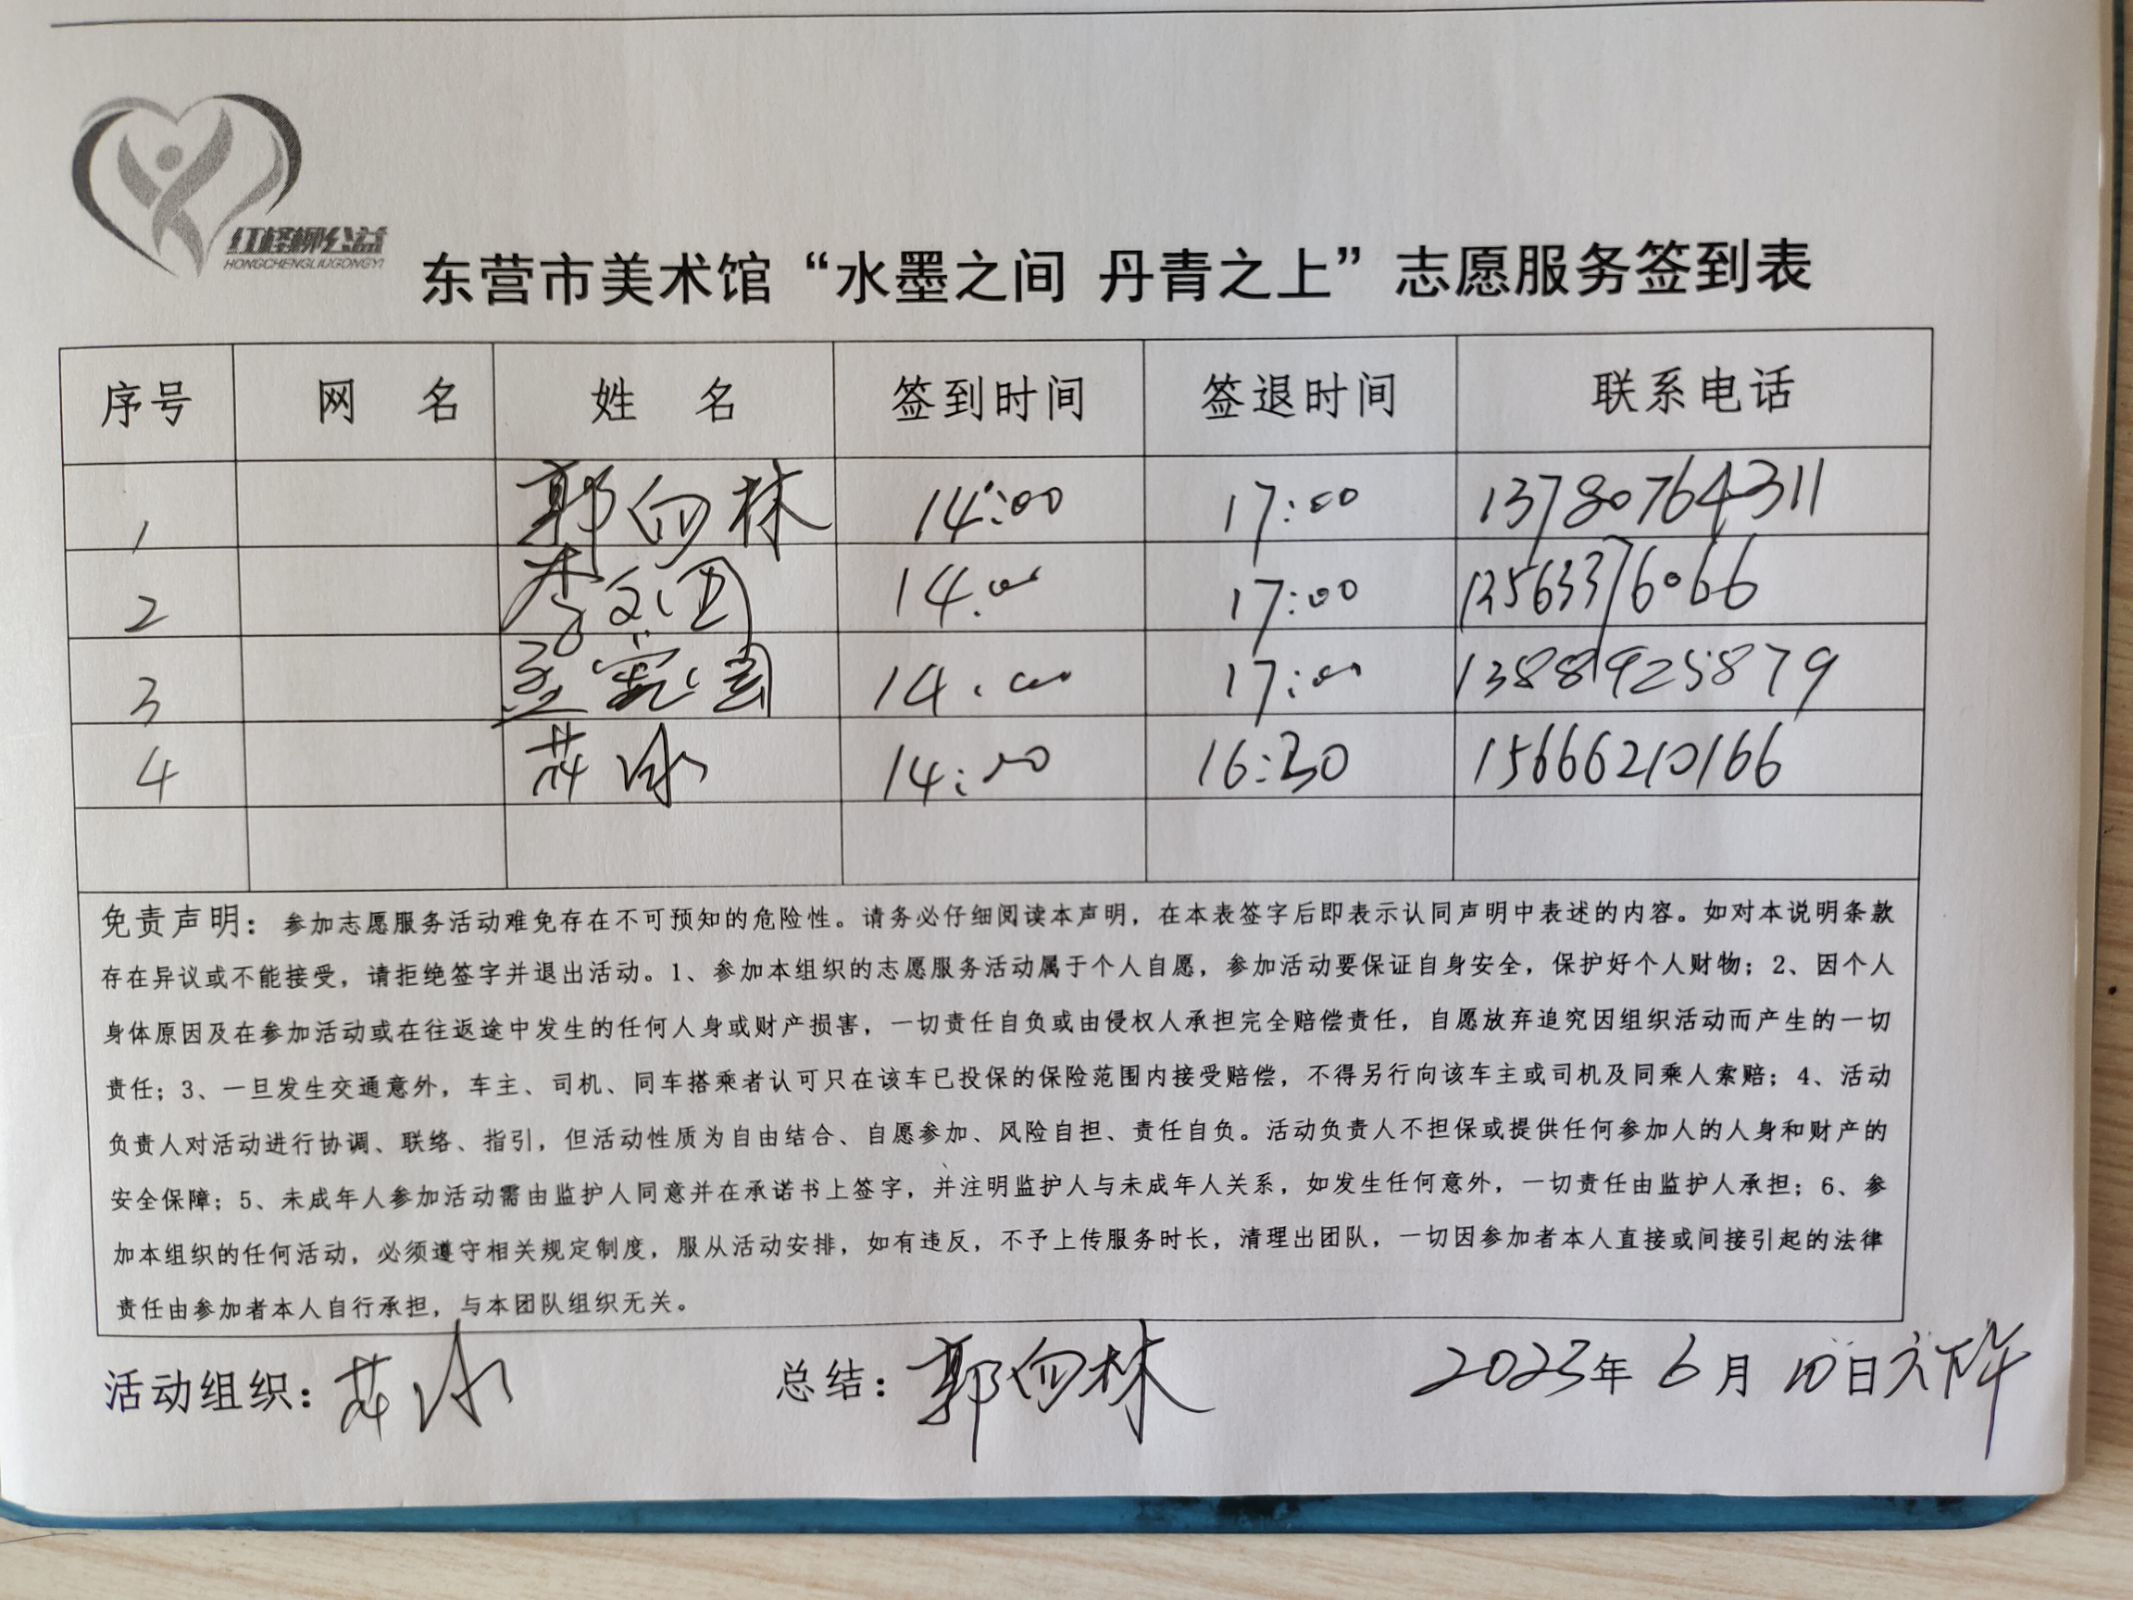 红柽柳公益
HONGCHENGLIUGONGYI
东营市美术馆“水墨之间 丹青之上”志愿服务签到表
序号 网 名 姓 名 签到时间 签退时间 联系电话
1 郭向林 14:00 17:00 13780764311
2 李文国 14:00 17:00 13563376066
3 14:00 17:00 13889925879
4 苏冰 14:00 16:30 15666210166
免责声明：参加志愿服务活动难免存在不可预知的危险性。请务必仔细阅读本声明，在本表签字后即表示认同声明中表述的内容。如对本说明条款
存在异议或不能接受，请拒绝签字并退出活动。1、参加本组织的志愿服务活动属于个人自愿，参加活动要保证自身安全，保护好个人财物；2、因个人
身体原因及在参加活动或在往返途中发生的任何人身或财产损害，一切责任自负或由侵权人承担完全赔偿责任，自愿放弃追究因组织活动而产生的一切
责任；3、一旦发生交通意外，车主、司机、同车搭乘者认可只在该车已投保的保险范围内接受赔偿，不得另行向该车主或司机及同乘人索赔；4、活动
负责人对活动进行协调、联络、指引，但活动性质为自由结合、自愿参加、风险自担、责任自负。活动负责人不担保或提供任何参加人的人身和财产的
安全保障；5、未成年人参加活动需由监护人同意并在承诺书上签字，并注明监护人与未成年人关系，如发生任何意外，一切责任由监护人承担；6、参
加本组织的任何活动，必须遵守相关规定制度，服从活动安排，如有违反，不予上传服务时长，清理出团队，一切因参加者本人直接或间接引起的法律
责任由参加者本人自行承担，与本团队组织无关。
活动组织：苏冰 总结：郭向林 2023年6月10日六下午